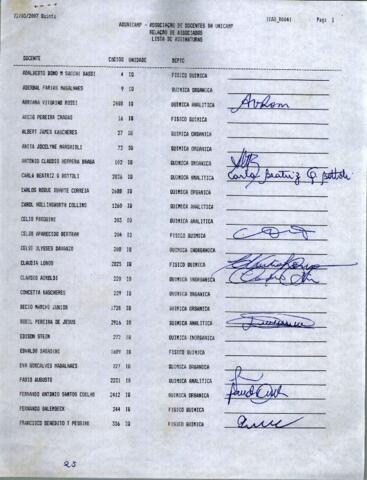 22/03/2007 Quinta ADUNICAMP - ASSOCIAÇÃO DE DOCENTES DA UNICAMP Pag: 1
RELAÇÃO DE ASSOCIADOS
LISTA DE ASSINATURAS
DOCENTE CODIGO UNIDADE DEPTO
ADALBERTO BONO M SACCHI BASSI 4 IQ FISICO QUIMICA
ADERBAL FARIAS MAGALHAES 9 IQ QUIMICA ORGANICA
ADRIANA VITORINO ROSSI 2408 IQ QUIMICA ANALITICA
AECIO PEREIRA CHAGAS 16 IQ FISICO QUIMICA
ALBERT JAMES KASCHERES 27 IQ QUIMICA ORGANICA
ANITA JOCELYNE MARSAIOLI 73 IQ QUIMICA ORGANICA
ANTONIO CLAUDIO HERRERA BRAGA 102 IQ QUIMICA ORGANICA
CARLA BEATRIZ G BOTTOLI 2826 IQ QUIMICA ANALITICA Carla Beatriz G. Bottoli
CARLOS ROQUE DUARTE CORREIA 2600 IQ QUIMICA ORGANICA
CAROL HOLLINGWORTH COLLINS 1260 IQ QUIMICA ANALITICA
CELIO PASQUINI 203 IQ QUIMICA ANALITICA
CELSO APARECIDO BERTRAN 204 IQ FISICO QUIMICA
CELSO ULYSSES DAVANZO 208 IQ QUIMICA INORGANICA
CLAUDIA LONGO 2825 IQ FISICO QUIMICA
CLAUDIO AIROLDI 220 IQ QUIMICA INORGANICA
CONCETTA KASCHERES 229 IQ QUIMICA ORGANICA
DECIO MARCHI JUNIOR 1728 IQ QUIMICA ORGANICA
DOSIL PEREIRA DE JESUS 2916 IQ QUIMICA ANALITICA
EDISON STEIN 272 IQ QUIMICA INORGANICA
EDVALDO SABADINI 1609 IQ FISICO QUIMICA
EVA GONCALVES MAGALHAES 327 IQ QUIMICA ORGANICA
FABIO AUGUSTO 2221 IQ QUIMICA ANALITICA
FERNANDO ANTONIO SANTOS COELHO 2412 IQ QUIMICA ORGANICA
FERNANDO GALEMBECK 344 IQ FISICO QUIMICA
FRANCISCO BENEDITO T PESSINE 356 IQ FISICO QUIMICA
25